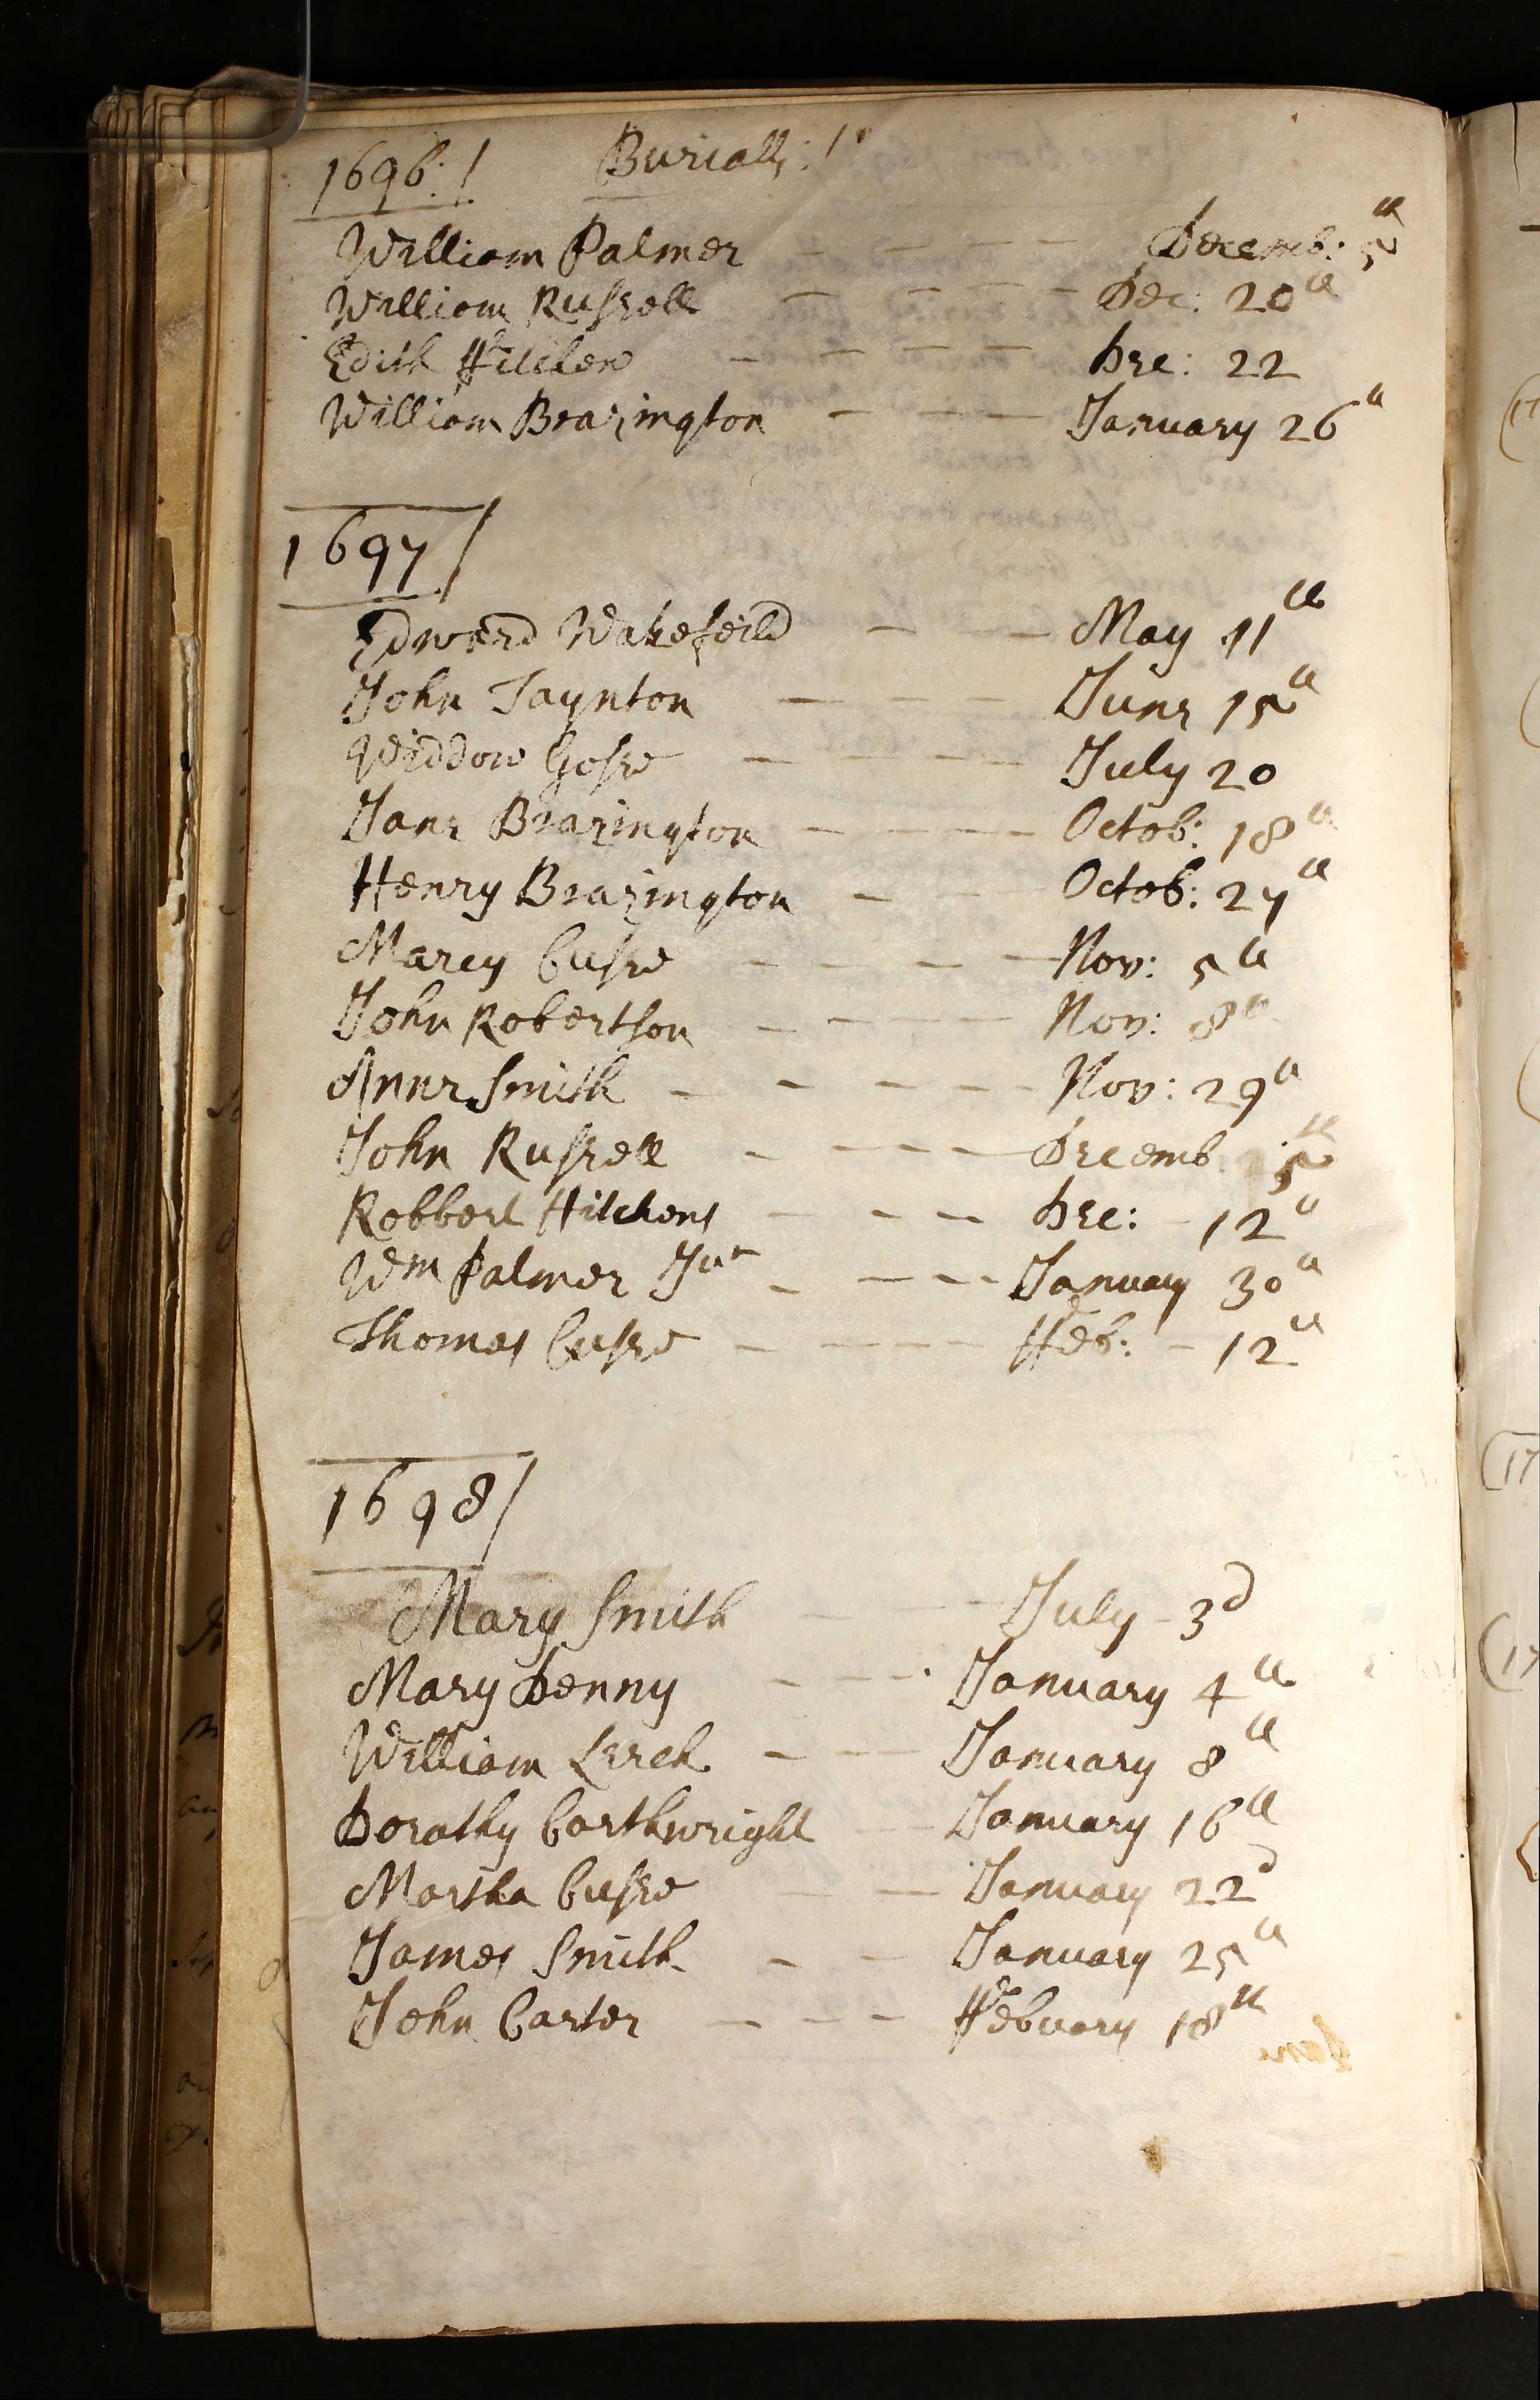 1696:/ Burialls:/
William Palmer - - - - Decemb: 5th
William Russell - - - - Dec: 20th
Edith Hitchen - - - - Dec: 22
William Brazington - - - January 26th
1697/
Edward Wakefeild - - May 11th
John Taynton - - - June 15th
Widdow Gosse - - - - July 20
Jane Brazington - - - - Octob: 18th
Henry Brazington - - Octob: 27th
Marcy Cusse - - - - Nov: 5th
John Robertson - - - - Nov: 8th
Anne Smith - - - - Nov: 29th
John Russell - - - - Decemb 5th
Robbert Hitchens - - - Dec: - 12th
Wm Palmer Junr - - - - January 30th
Thomas Cusse - - - - Feb: - 12th
1698/
Mary Smith - - July - 3d
Mary Denny - - - January 4th
William Leech - - - January 8th
Dorathy Carthwright - January 16th
Martha Cusse - - January 22d
James Smith - - January 25th
John Carter - - - Febuary 18th